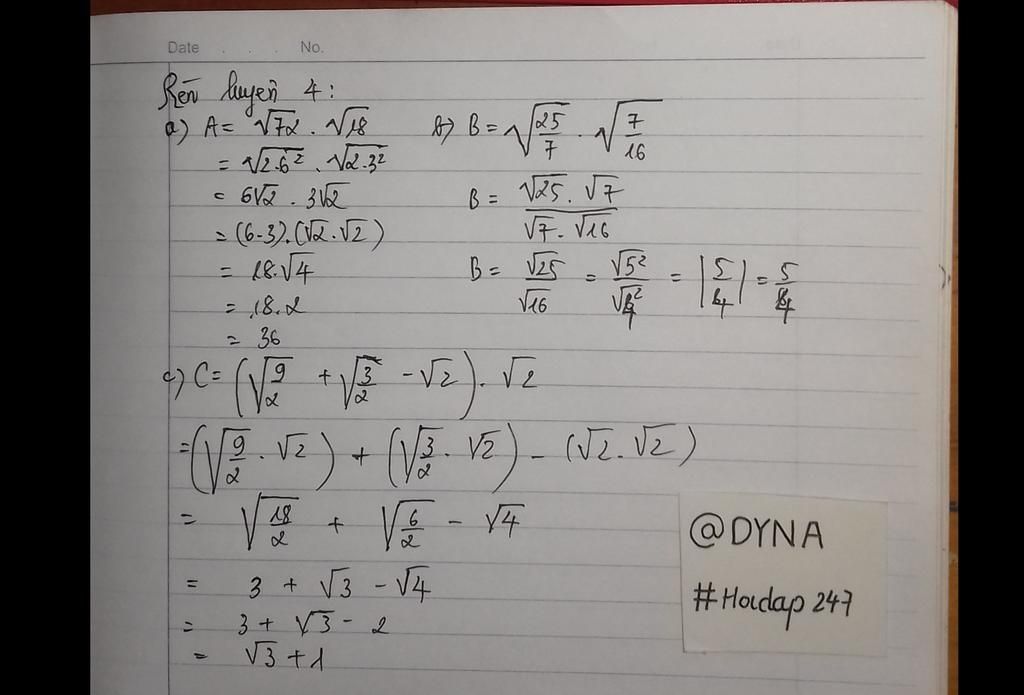 Date . . . No.
Rèn luyện 4:
a) A = √72 . √18
= √2.6² . √2.3²
= 6√2 . 3√2
= (6.3).(√2.√2)
= 18.√4
= 18.2
= 36
b) B = √25/7 . √7/16
B = √25.√7 / √7.√16
B = √25/√16 = √5²/√4² = |5/4| = 5/4
c) C = (√9/2 + √3/2 - √2) . √2
= (√9/2 . √2) + (√3/2 . √2) - (√2.√2)
= √18/2 + √6/2 - √4
= 3 + √3 - √4
= 3 + √3 - 2
= √3 + 1
@DYNA
#Hoidap247